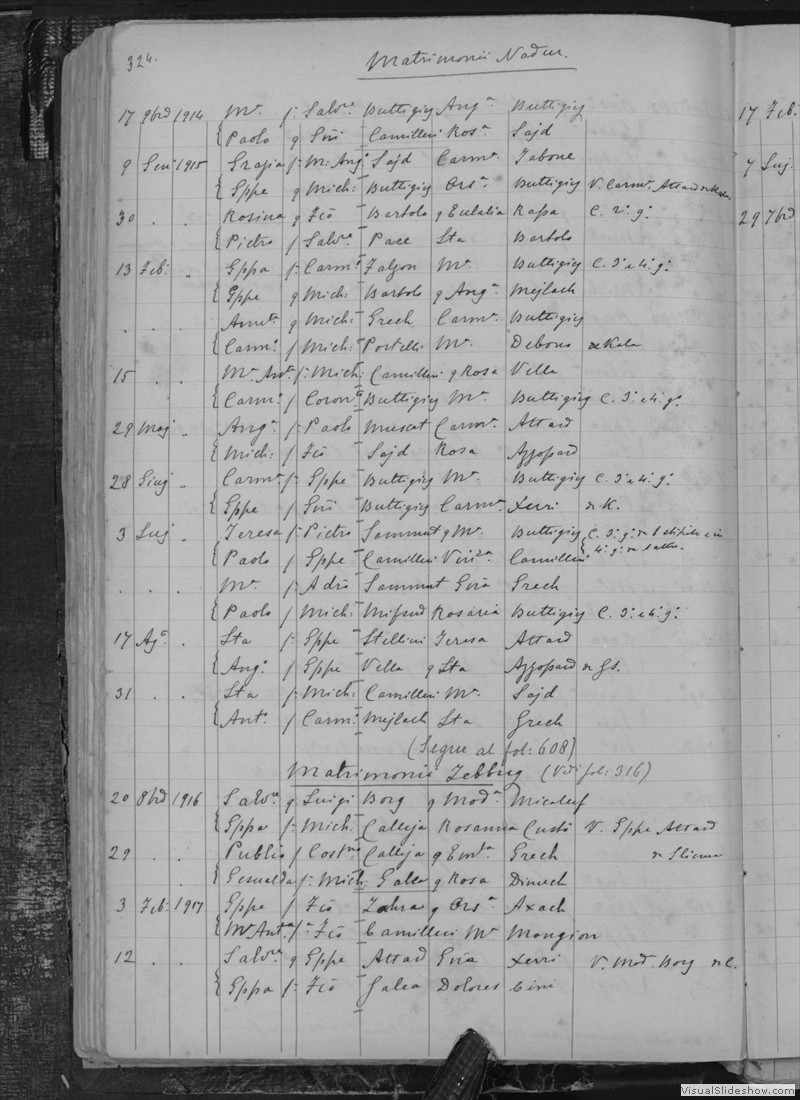 324.
Matrimonii Nadur.
17 9brd 1914 Mª. f: Salvre Buttigieg Angª Buttigieg
{ Paolo q Giñi Camilleri Rosª Sajd 17 Feb:
9 Gen 1915 Grazia f: M: Angº Sajd Carmª. Tabone 7 Lug:
{ Gppe q Mich: Buttigieg Orsª. Buttigieg V. Carmª. Attard
30 . . Rosina q Fcõ Bartolo q Eulalia Rapa C. 2º. gº. 29 7brd
{ Pietro f Salvre. Pace Sta Bartolo
13 Feb: . Gppa f: Carmº. Falzon Mª. Buttigieg C. 3º e 4º. gº.
{ Gppe q Mich: Bartolo q Angª. Mejlach
. . . q Mich: Grech Carmª. Buttigieg
{ Carmº. f Mich: Portelli Mª. Debono
15 . . Mª. Antª. f: Mich: Camilleri q Rosa Vella
{ Carmº. f Buttigieg Mª. Buttigieg C. 3º e 4º. gº.
29 Mag . Angª. f: Paolo Muscat Carmª. Attard
{ Mich: f Fcõ Sajd Rosa Azzopard
28 Giug . Carmª. f: Gppe Buttigieg Mª. Buttigieg C. 3º e 4º. gº.
{ Gppe f Giñi Buttigieg Carmª. Xerri K.
3 Lug . Teresa f: Pietro Sammut q Mª. Buttigieg C. 3º. gº.
{ Paolo f Gppe Camilleri Camilleri 4º. gº.
. . . Mª. f: Adrõ Sammut Grech
{ Paolo f Mich: Mifsud Rosaria Buttigieg C. 3º e 4º. gº.
17 Agº. . Sta f: Gppe Stellini Teresa Attard
{ Angº. f Gppe Vella q Sta Azzopard
31 . . Sta f: Mich: Camilleri Mª. Sajd
{ Antº. f Carmº: Mejlach Sta Grech
(Segue al fol: 608)
Matrimonii Zebbug (Vedi fol: 316)
20 8brd 1916 Salvre q Luigi Borg q Madª. Micalef
{ Gppa f: Mich: Calleja Rosanna Custõ V. Gppe Attard
29 . . Publio f Calleja q Grech Sliema
{ f: Mich: Galea q Rosa Dimech
3 Feb: 1917 Gppe f Fcõ Zahra q Orsª. Axach
{ Mª Antª f: Fcõ Camilleri Mª. Mongion
12 . . Salvre. q Gppe Attad Xerri V. Mad. Borg
{ Gppa f: Fcõ Galea Dolores Cini
VisualSlideshow.com